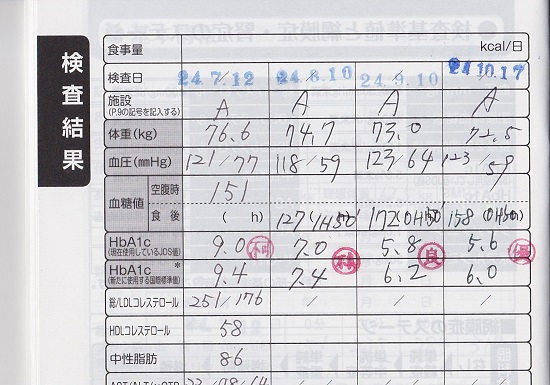 検査結果
食事量 kcal/日
検査日 24.7/12 24.8.10 24.9.10 24.10.17
施設 (P.9の記号を記入する) A A A A
体重(kg) 76.6 74.7 73.0 72.5
血圧(mmHg) 121/77 118/59 123/64 123/59
血糖値 空腹時 151
食後 ( h) 127 172 158
HbA1c (現在使用しているJDS値) 9.0 不可 7.0 5.8 良 5.6 優
HbA1c* (新たに使用する国際標準値) 9.4 7.4 6.2 6.0
総/LDLコレステロール 251/176 / / /
HDLコレステロール 58
中性脂肪 86